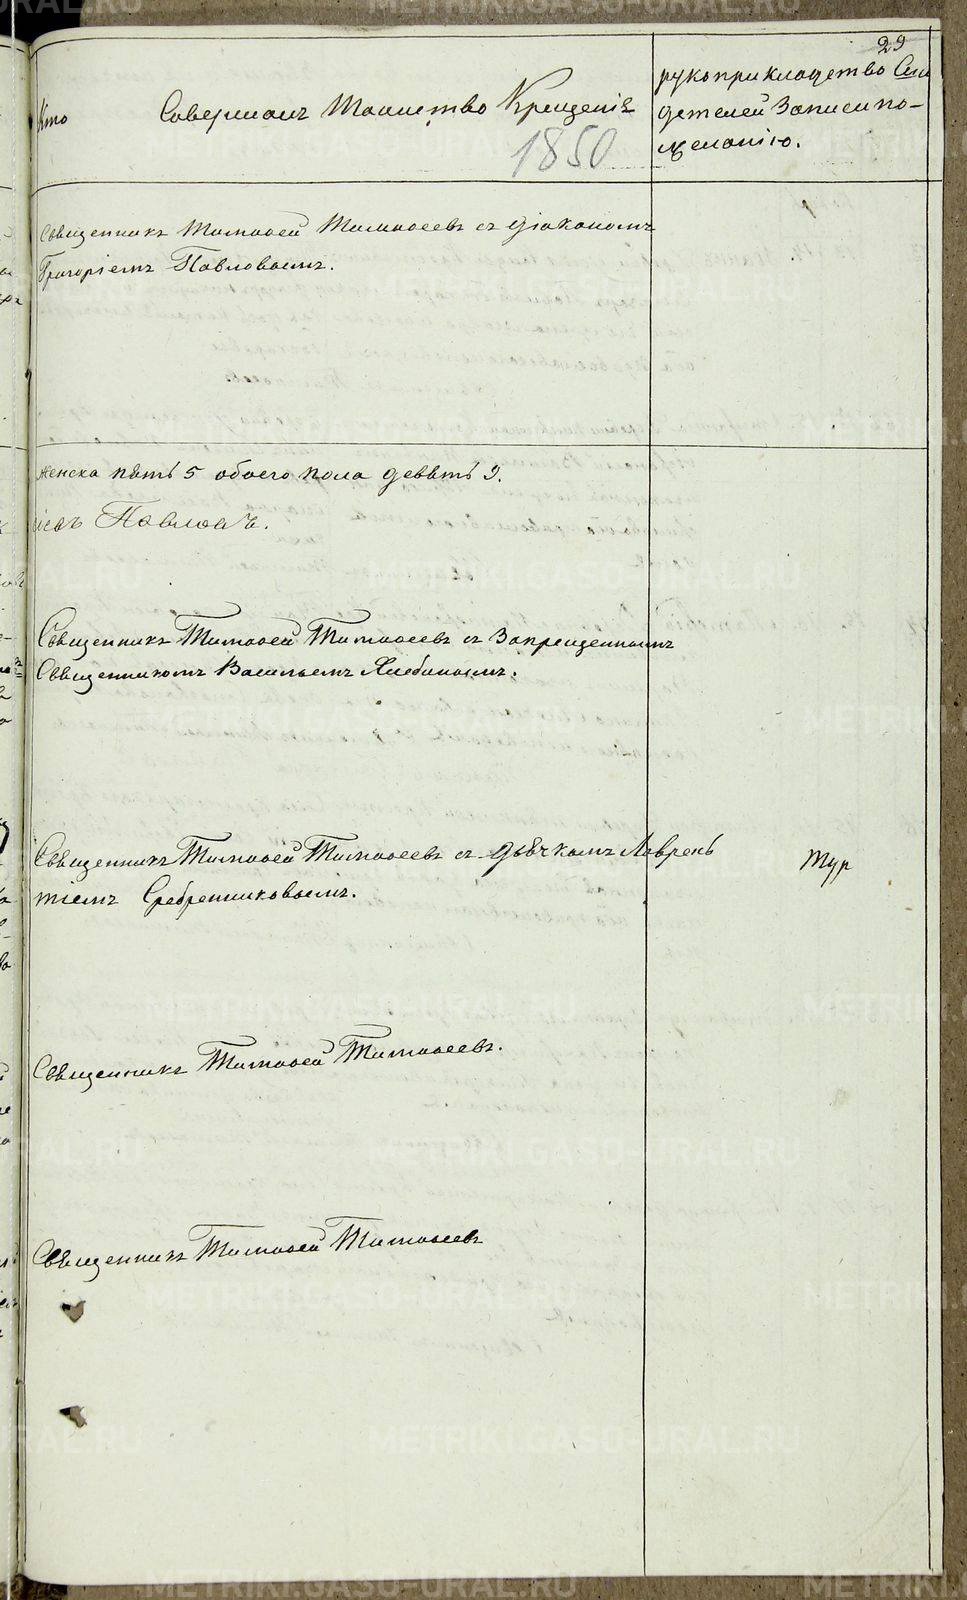 29
Кто Совершалъ Таинство Крещенія
1850
рукоприкладство Сви
детелей Записи по-
желанію.
Священникъ Тимофей Тимофеевъ съ діакономъ
Григоріемъ Павловымъ.
женска пять 5 обоего пола девять 9.
Павловъ.
Священникъ Тимофей Тимофеевъ съ Запрещеннымъ
Священникомъ Васильемъ Хлебинымъ.
Священникъ Тимофей Тимофеевъ съ дьячкомъ Лаврень
тіемъ Сребренниковымъ.
Тур
Священникъ Тимофей Тимофеевъ.
Священникъ Тимофей Тимофеевъ
METRIKI.GASO-URAL.RU